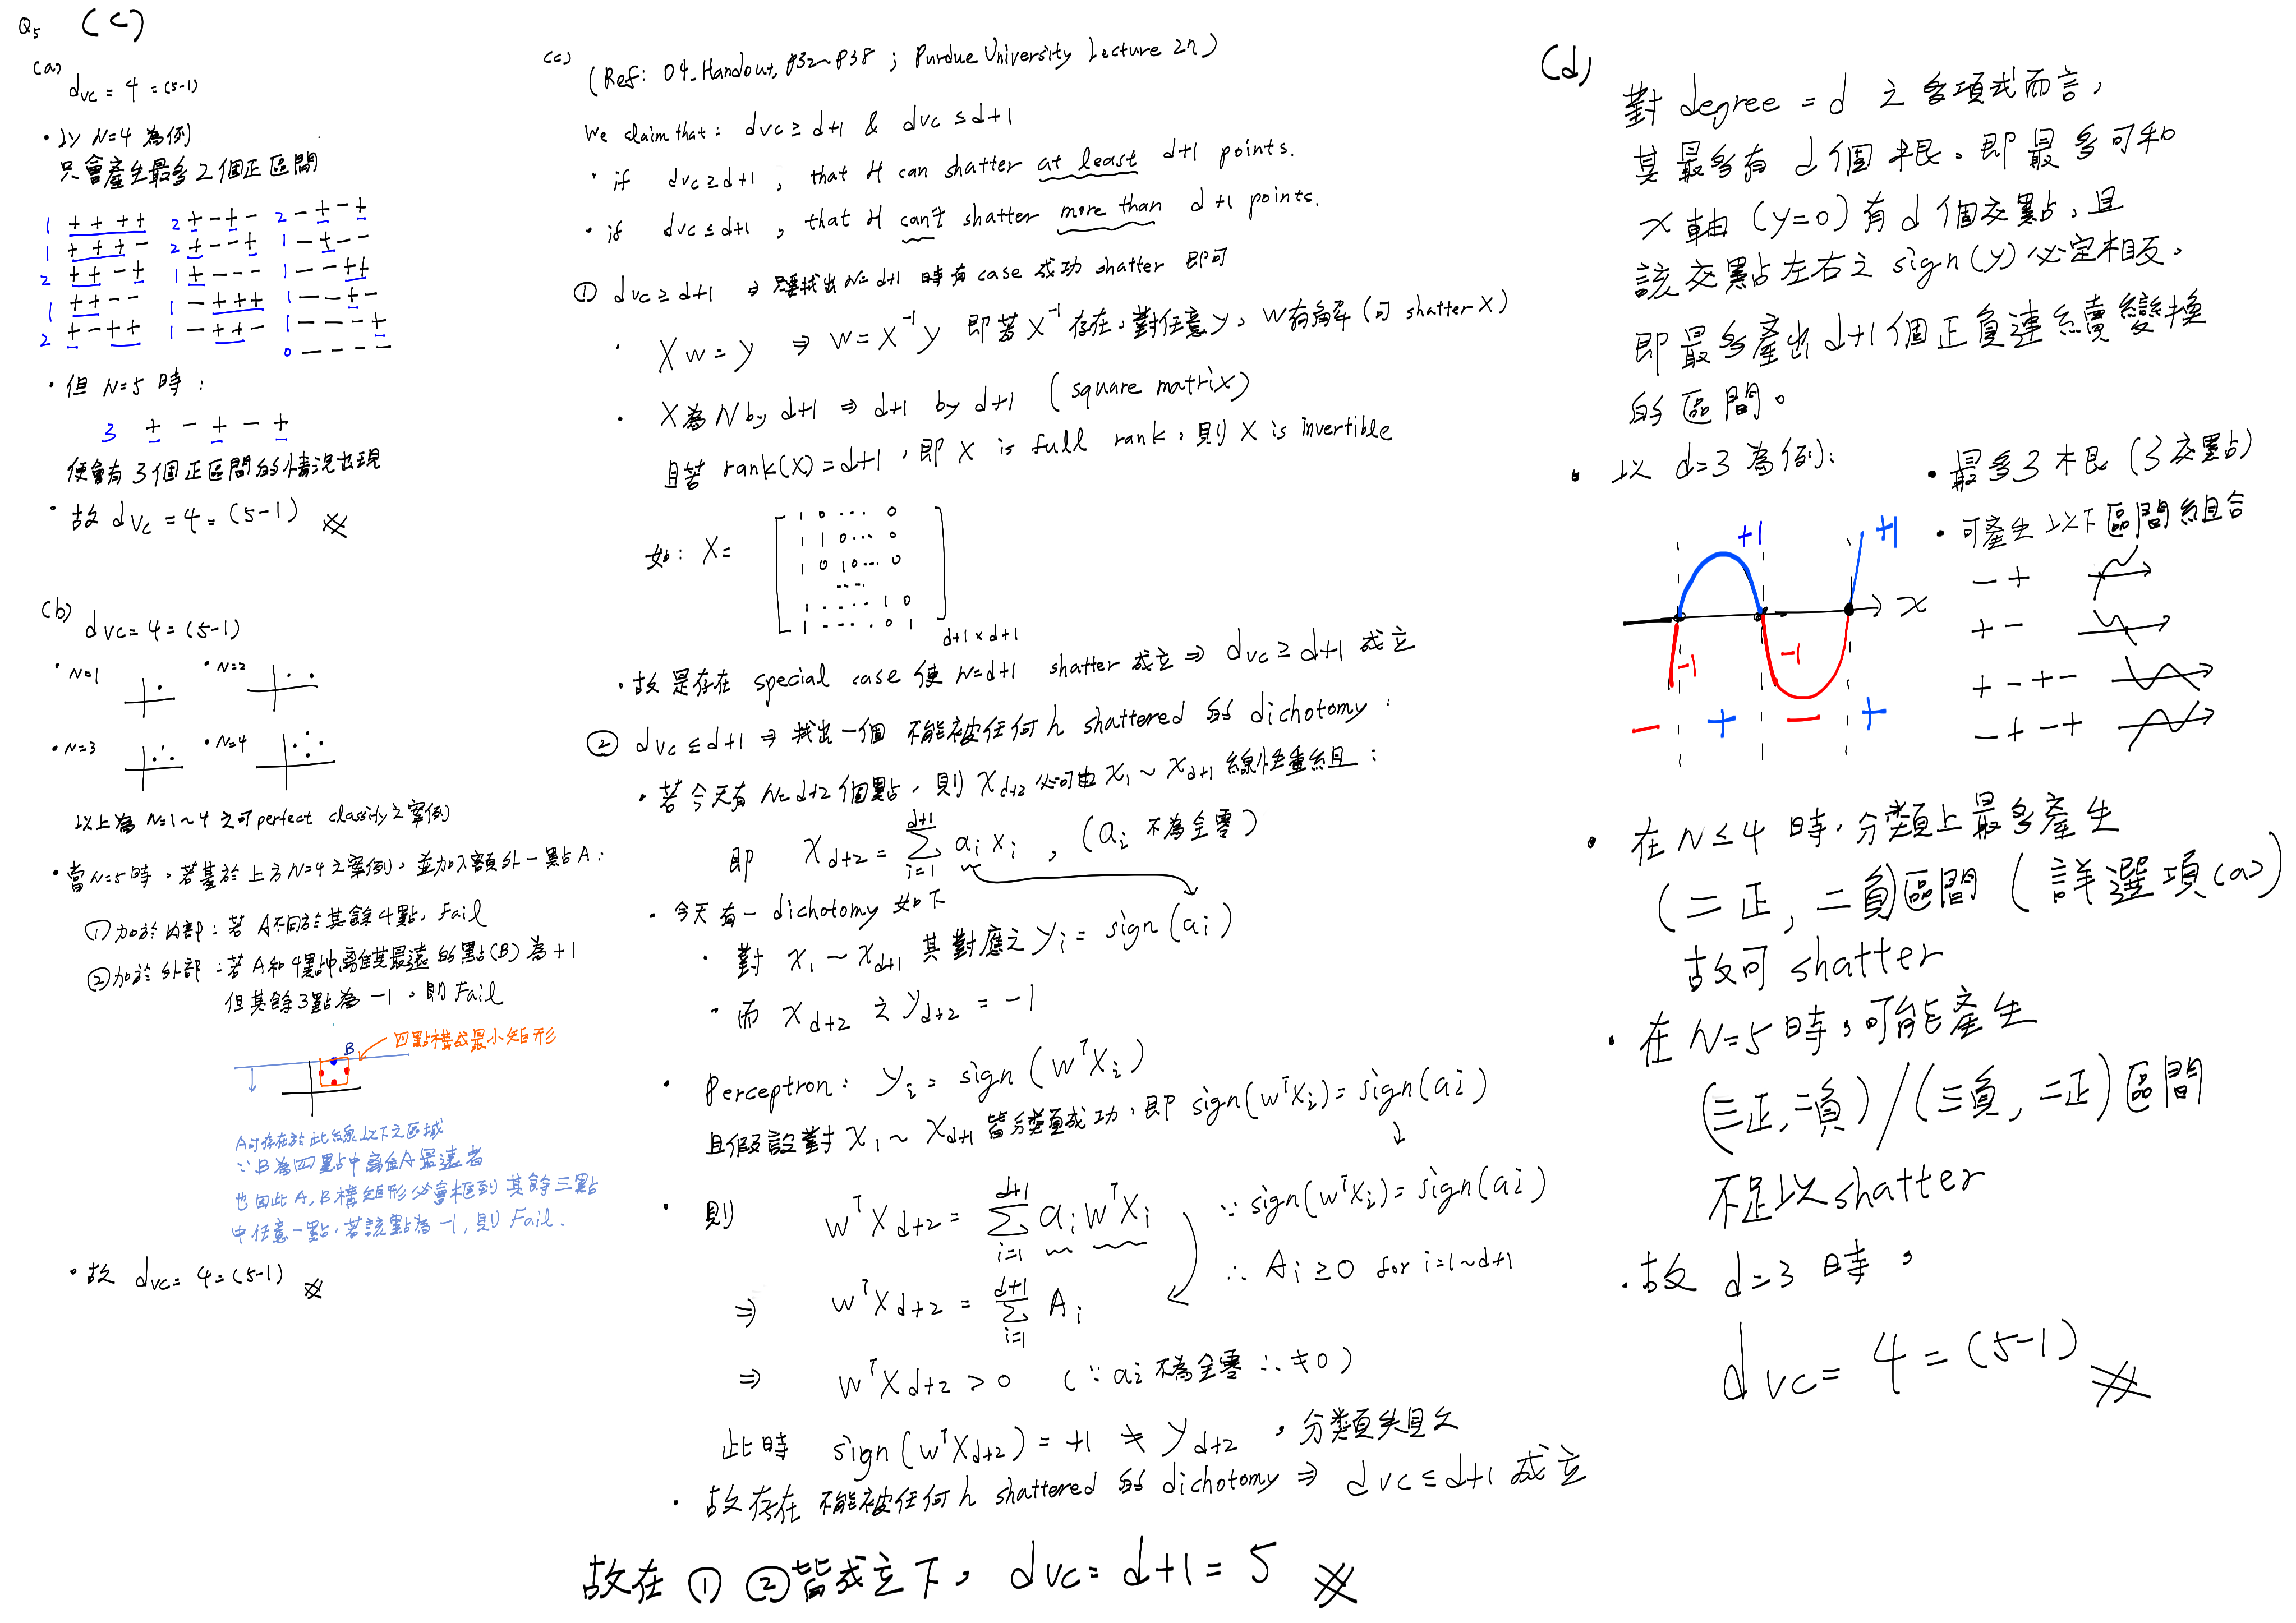 Q5 (c)
(a)
dvc = 4 = (5-1)
• 以 N=4 為例
只會產生最多2個正區間
1 + + + +  2 + - + -  2 - + - +
1 + + + -  2 + - - +  1 - + - -
2 + + - +  1 + - - -  1 - - + +
1 + + - -  1 - + + +  1 - - + -
2 + - + +  1 - + + -  1 - - - +
0 - - - -
• 但 N=5 時:
3 + - + - +
便會有3個正區間的情況出現
• 故 dvc = 4 = (5-1) ※
(b)
dvc = 4 = (5-1)
• N=1 • N=2
• N=3 • N=4
以上為 N=1~4 之可 perfect classify 之案例
• 當 N=5 時,若基於上方 N=4 之案例,並加入額外一點A:
①加於內部:若 A不同於其餘4點, Fail
②加於外部:若A和4點中離其最遠的點(B)為+1
但其餘3點為-1,則 Fail
B 四點構成最小矩形
A可存在於此線以下之區域
∵B為四點中離A最遠者
也因此A,B構矩形必會框到其餘三點
中任意一點,若該點為-1,則 Fail.
• 故 dvc = 4 = (5-1) ※
(c)
(Ref: 04_Handout, P32~P38 ; Purdue University Lecture 22)
We claim that: dvc ≥ d+1 & dvc ≤ d+1
• if dvc ≥ d+1 , that H can shatter at least d+1 points.
• if dvc ≤ d+1 , that H can't shatter more than d+1 points.
① dvc ≥ d+1 ⇒ 只要找出 N=d+1 時有 case 成功 shatter 即可
• Xw = y ⇒ w = X⁻¹y 即若 X⁻¹ 存在,對任意y,w有解(可 shatter X)
• X為 N by d+1 ⇒ d+1 by d+1 (square matrix)
且若 rank(X) = d+1 , 即 X is full rank,則 X is invertible
如: X =
1 0 ... 0
1 1 0 ... 0
1 0 1 0 ... 0
....
1 ..... 1 0
1 ..... 0 1
d+1 × d+1
• 故是存在 special case 使 N=d+1 shatter 成立 ⇒ dvc ≥ d+1 成立
② dvc ≤ d+1 ⇒ 找出一個 不能被任何 h shattered 的 dichotomy :
• 若今天有 N=d+2 個點,則 X_{d+2} 必可由 X₁~X_{d+1} 線性重組:
即 X_{d+2} = Σ_{i=1}^{d+1} a_i x_i , (a_i 不為全零)
• 今天有一 dichotomy 如下
• 對 X₁~X_{d+1} 其對應之 y_i = sign(a_i)
• 而 X_{d+2} 之 y_{d+2} = -1
• Perceptron: y_i = sign(wᵀX_i)
且假設對 X₁~X_{d+1} 皆分類成功,即 sign(wᵀX_i) = sign(a_i)
• 則 wᵀX_{d+2} = Σ_{i=1}^{d+1} a_i wᵀX_i ∵ sign(wᵀX_i) = sign(a_i)
∴ A_i ≥ 0 for i=1~d+1
⇒ wᵀX_{d+2} = Σ_{i=1}^{d+1} A_i
⇒ wᵀX_{d+2} > 0 (∵ a_i 不為全零 ∴ ≠0)
此時 sign(wᵀX_{d+2}) = +1 ≠ y_{d+2} ,分類失敗
• 故存在 不能被任何 h shattered 的 dichotomy ⇒ dvc ≤ d+1 成立
故在 ① ②皆成立下, dvc = d+1 = 5 ※
(d)
對 degree = d 之多項式而言,
其最多有 d個根。即最多可和
x軸 (y=0) 有 d 個交點,且
該交點左右之 sign(y) 必定相反。
即最多產出 d+1 個正負連續變換
的區間。
• 以 d=3 為例:
+1 +1
x
-1 -1
- + - +
• 最多3根 (3交點)
• 可產生以下區間組合
- +
+ -
+ - + -
- + - +
• 在 N≤4 時,分類上最多產生
(二正, 二負)區間 (詳選項(a))
故可 shatter
• 在 N=5 時,可能產生
(三正,二負) / (三負,二正) 區間
不足以 shatter
• 故 d=3 時,
dvc = 4 = (5-1) ※